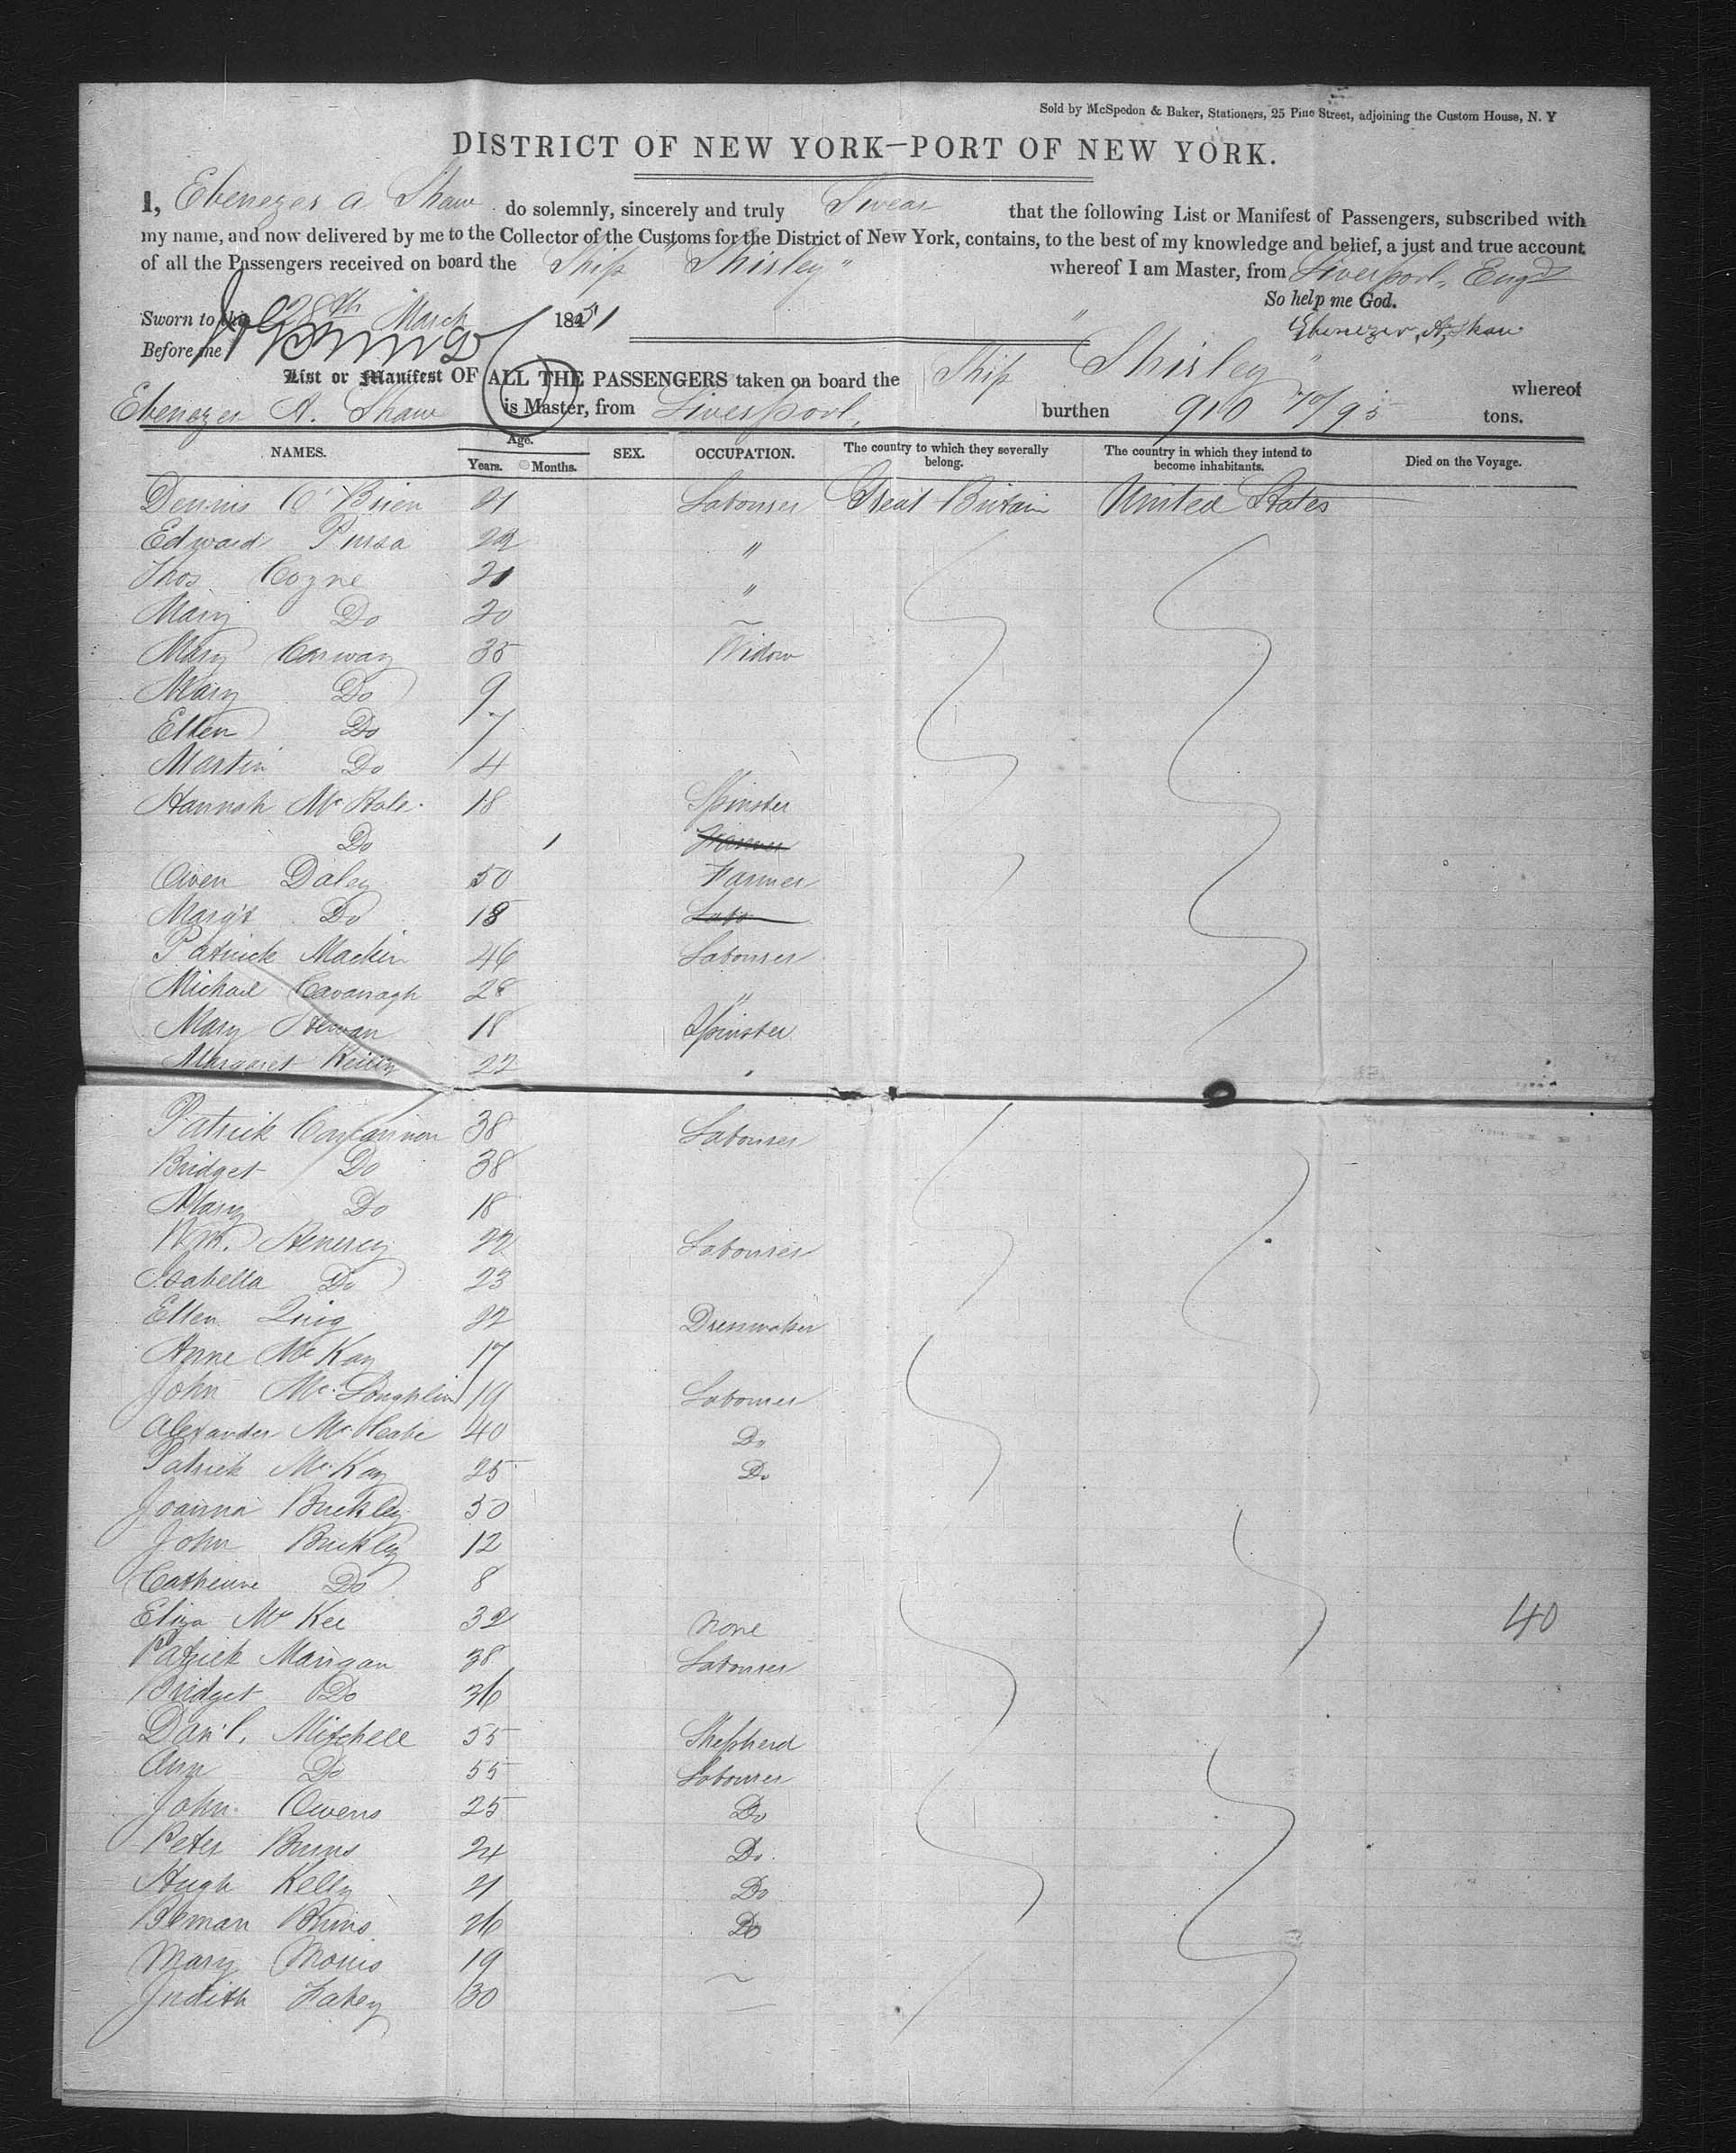 Sold by McSpedon & Baker, Stationers, 25 Pine Street, adjoining the Custom House, N. Y
DISTRICT OF NEW YORK—PORT OF NEW YORK.
I, Ebenezer A Shaw do solemnly, sincerely and truly Swear that the following List or Manifest of Passengers, subscribed with
my name, and now delivered by me to the Collector of the Customs for the District of New York, contains, to the best of my knowledge and belief, a just and true account
of all the Passengers received on board the Ship "Shirley" whereof I am Master, from Liverpool, Engd
So help me God.
Sworn to this 28th March 1851
Ebenezer, A, Shaw
Before me
List or Manifest OF ALL THE PASSENGERS taken on board the Ship Shirley" whereof
Ebenezer A. Shaw is Master, from Liverpool, burthen 910 70/95 tons.
NAMES. Age. Years. Months. SEX. OCCUPATION. The country to which they severally belong. The country in which they intend to become inhabitants. Died on the Voyage.
Dennis O'Brien 21 Labourer Great Britain United States
Edward 22 "
Thos Coyne 21 "
Mary Do 20
Mary Conway 35 Widow
Mary Do 9
Ellen Do 7
Martin Do 4
Hannah Mc Hale 18 Spinster
Do 1 Farmer
Owen Daley 50 Farmer
Margt Do 18 Labo
Patrick Mackin 46 Labourer
Michael Cavanagh 28 "
Mary 18 Spinster
Margaret Reilly 22
Patrick Concannon 38 Labourer
Bridget Do 38
Mary Do 18
Wm. 22 Labourer
Isabella Do 23
Ellen Quig 22 Dressmaker
Anne Mc Kay 17
John Mc Loughlin 19 Labourer
Alexander Mc Cabe 40 Do
Patrick Mc Kay 25 Do
Joanna Buckley 50
John Buckley 12
Catherine Do 8
Eliza Mc Kee 32 None 40
Patrick Mangan 38 Labourer
Bridget Do 36
Dan'l. Mitchell 55 Shepherd
Ann Do 55 Labourer
John Owens 25 Do
Peter Burns 24 Do
Hugh Kelly 21 Do
26 Do
Mary Morris 19
Judith Fahey 30